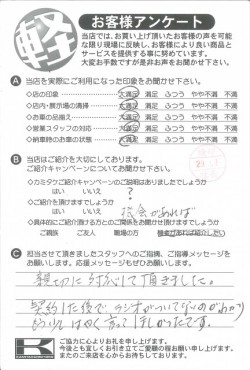 軽
お客様アンケート
当店では、お買い上げ頂いたお客様の声を可能
な限り現場に反映し、お客様により良い商品と
サービスを提供する事に努めています。
大変お手数ですが是非お声をお聞かせ下さい。
A 当店を実際にご利用になった印象をお聞かせ下さい。
◇店の印象 大満足 満足 ふつう やや不満 不満
◇店内・展示場の清掃 大満足 満足 ふつう やや不満 不満
◇お車の品揃え 大満足 満足 ふつう やや不満 不満
◇営業スタッフの対応 大満足 満足 ふつう やや不満 不満
◇納車時のお車の状態 大満足 満足 ふつう やや不満 不満
B 当店はご紹介を大切にしております。
ご紹介キャンペーンについてお聞かせ下さい。
◇カミタケご紹介キャンペーンのご説明はありましたでしょうか
はい いいえ ?
◇ご紹介を頂けますでしょうか
はい いいえ 機会があれば
◇具体的にご紹介頂ける方との関係をお聞かせ頂けますでしょうか
ご親族 ご友人 職場の方 機会があれば紹介したい
C 担当させて頂きましたスタッフへのご指摘、ご指導メッセージを
お願いします。応援メッセージもぜひお願いします。
親切に対応して頂きました。
契約した後で ラジオがついてないのがわかり
言ってほしかったです。
K
ご協力に心よりお礼を申し上げます。
今後とも宜しくお引き立てご愛顧の程お願い申し上げます。
またのご来店を心からお待ちしております。